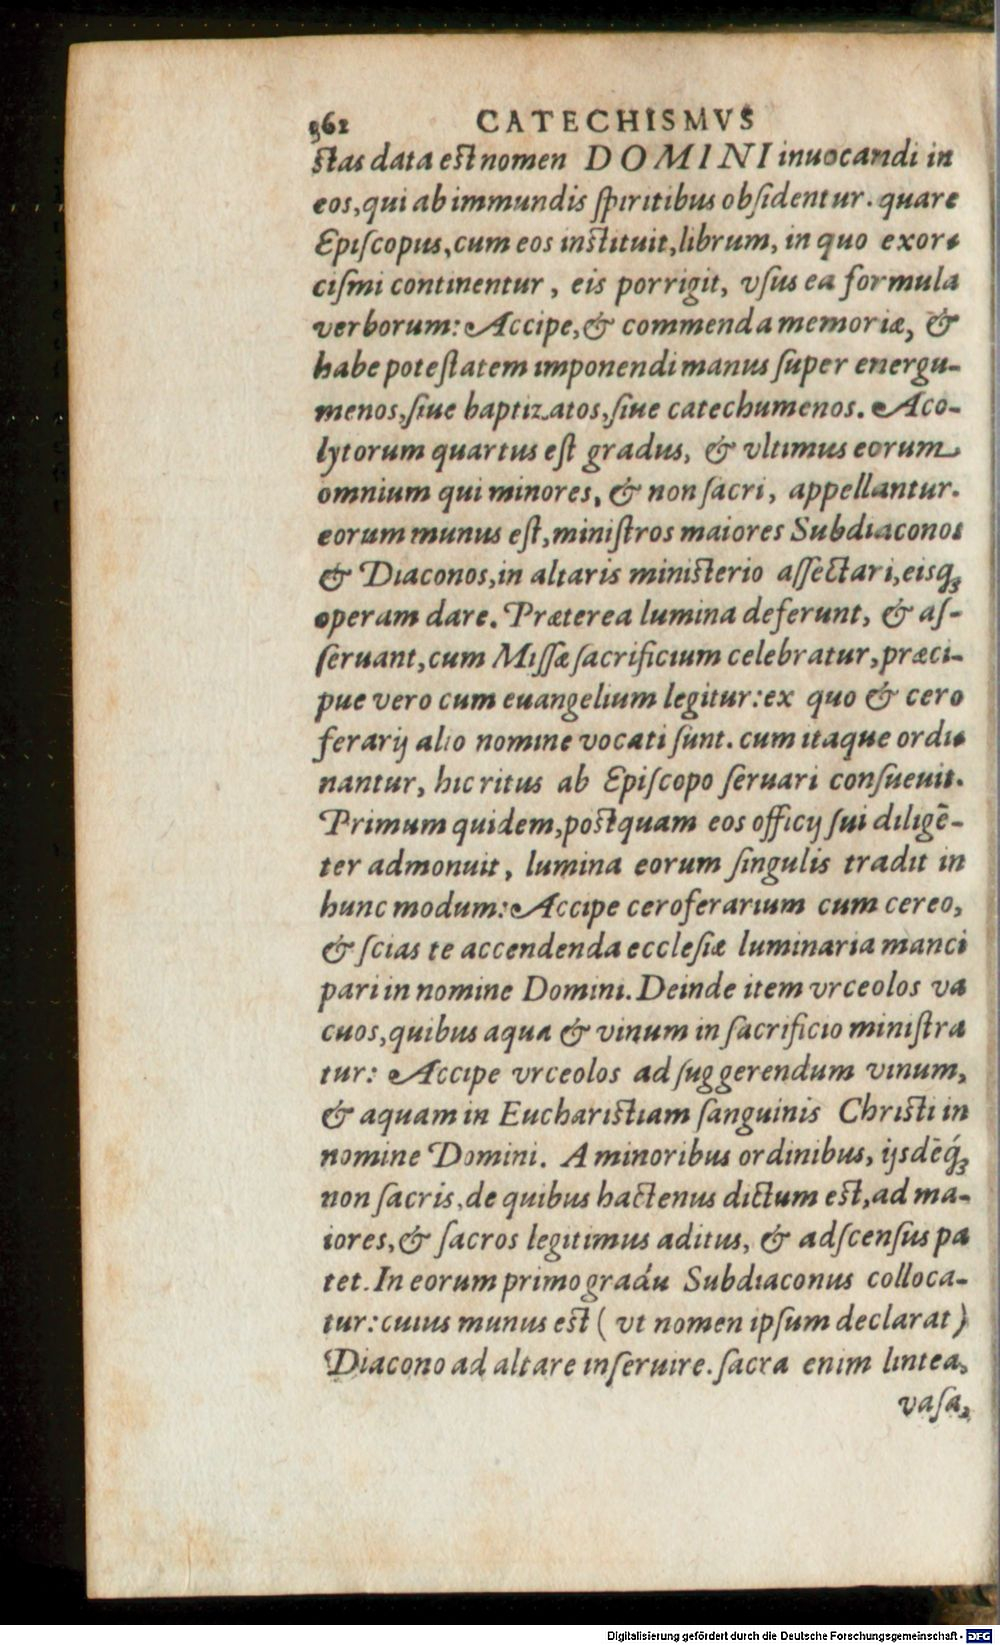 362 CATECHISMVS
stas data est nomen DOMINI inuocandi in
eos, qui ab immundis spiritibus obsidentur. quare
Episcopus, cum eos instituit, librum, in quo exor-
cismi continentur, eis porrigit, vsus ea formula
verborum: Accipe, & commenda memoriæ, &
habe potestatem imponendi manus super energu-
menos, siue baptizatos, siue catechumenos. Aco-
lytorum quartus est gradus, & vltimus eorum
omnium qui minores, & non sacri, appellantur.
eorum munus est, ministros maiores Subdiaconos
& Diaconos, in altaris ministerio assectari, eisq;
operam dare. Præterea lumina deferunt, & as-
seruant, cum Missæ sacrificium celebratur, præci-
pue vero cum euangelium legitur: ex quo & cero
ferarij alio nomine vocati sunt. cum itaque ordi-
nantur, hic ritus ab Episcopo seruari consueuit.
Primum quidem, postquam eos officij sui diligē-
ter admonuit, lumina eorum singulis tradit in
hunc modum: Accipe ceroferarium cum cereo,
& scias te accendenda ecclesiæ luminaria manci
pari in nomine Domini. Deinde item vrceolos va
cuos, quibus aqua & vinum in sacrificio ministra
tur: Accipe vrceolos ad suggerendum vinum,
& aquam in Eucharistiam sanguinis Christi in
nomine Domini. A minoribus ordinibus, ijsdēq́;
non sacris, de quibus hactenus dictum est, ad ma-
iores, & sacros legitimus aditus, & adscensus pa
tet. In eorum primo gradu Subdiaconus colloca-
tur: cuius munus est ( vt nomen ipsum declarat )
Diacono ad altare inseruire. sacra enim lintea,
vasa,
Digitalisierung gefördert durch die Deutsche Forschungsgemeinschaft - DFG